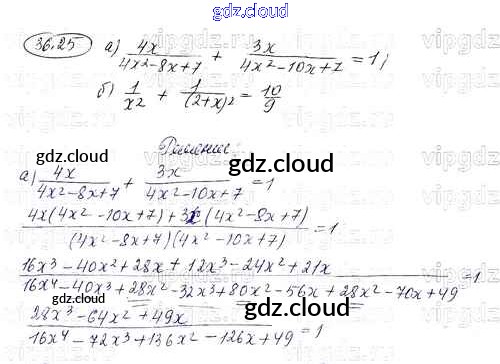 gdz.cloud
36.25 а) 4x/(4x²-8x+7) + 3x/(4x²-10x+7) = 1;
б) 1/x² + 1/(2+x)² = 10/9
Решение:
gdz.cloud
gdz.cloud
а) 4x/(4x²-8x+7) + 3x/(4x²-10x+7) = 1
(4x(4x²-10x+7)+3x(4x²-8x+7))/((4x²-8x+7)(4x²-10x+7)) = 1
(16x³-40x²+28x+12x³-24x²+21x)/(16x⁴-40x³+28x²-32x³+80x²-56x+28x²-70x+49) = 1
(28x³-64x²+49x)/(16x⁴-72x³+136x²-126x+49) = 1
gdz.cloud
gdz.cloud